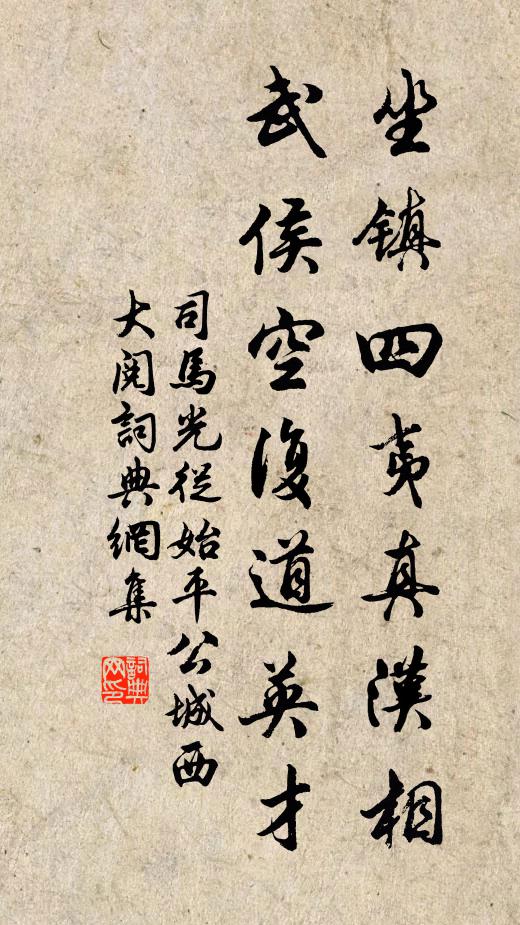 坐鎮四夷真漢相
武侯空復道英才
司馬光從始平公城西
大閱詞典網集
詞典網印